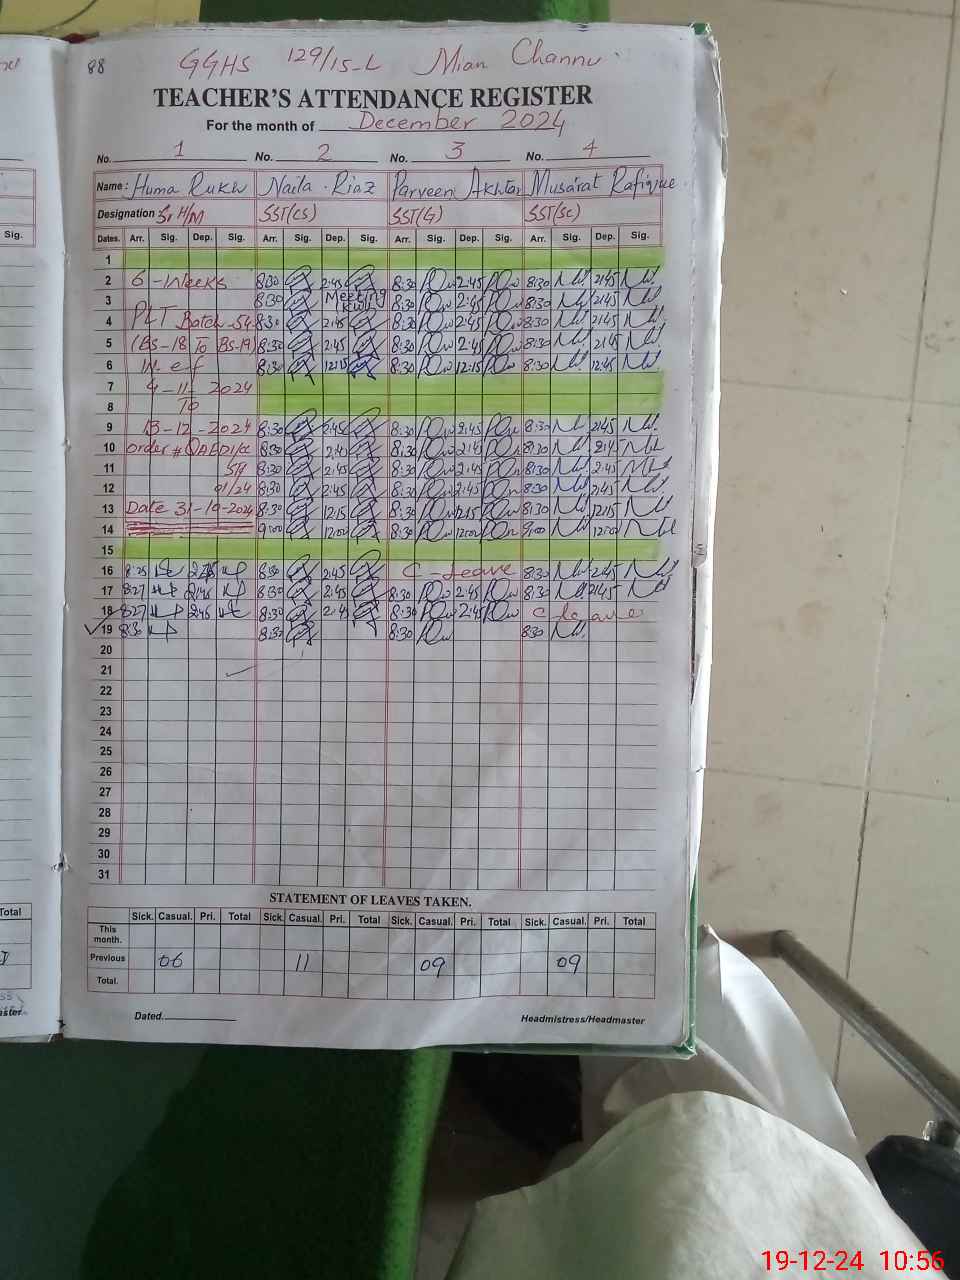 88
GGHS 129/15-L Mian Channu
TEACHER'S ATTENDANCE REGISTER
For the month of December 2024
No. 1 No. 2 No. 3 No. 4
Name: Huma Rukh Naila Riaz Parveen Akhtar Musarat Rafique
Designation: S, H/M SST(CS) SST(G) SST(SC)
Dates. Arr. Sig. Dep. Sig. Arr. Sig. Dep. Sig. Arr. Sig. Dep. Sig. Arr. Sig. Dep. Sig.
1
2 6-Weeks 8:30 2:45 8:30 2:45 8:30 2:45
3 8:30 Meeting 8:30 2:45 8:30 2:45
4 PLT Batch-54 8:30 2:45 8:30 2:45 8:30 2:45
5 (BS-18 To BS-19) 8:30 2:45 8:30 2:45 8:30 2:45
6 w.e.f 8:30 12:15 8:30 12:15 8:30 12:45
7 4-11-2024
8 To
9 13-12-2024 8:30 2:45 8:30 2:45 8:30 2:45
10 order # 8:30 2:45 8:30 2:45 8:30 2:45
11 8:30 2:45 8:30 2:45 8:30 2:45
12 01/24 8:30 2:45 8:30 2:45 8:30 2:45
13 Date 31-10-2024 8:30 12:15 8:30 12:15 8:30 12:15
14 9:00 12:00 8:30 12:00 9:00 12:00
15
16 8:25 2:45 8:30 2:45 C Leave 8:30 2:45
17 8:27 2:45 8:30 2:45 8:30 2:45 8:30 2:45
18 8:27 2:45 8:30 2:45 8:30 2:45 C leave
19 8:30 8:30 8:30 8:30
20
21
22
23
24
25
26
27
28
29
30
31
STATEMENT OF LEAVES TAKEN.
Sick. Casual. Pri. Total Sick. Casual. Pri. Total Sick. Casual. Pri. Total Sick. Casual. Pri. Total
This month.
Previous 06 11 09 09
Total.
Dated. Headmistress/Headmaster
Sig.
Total
19-12-24 10:56